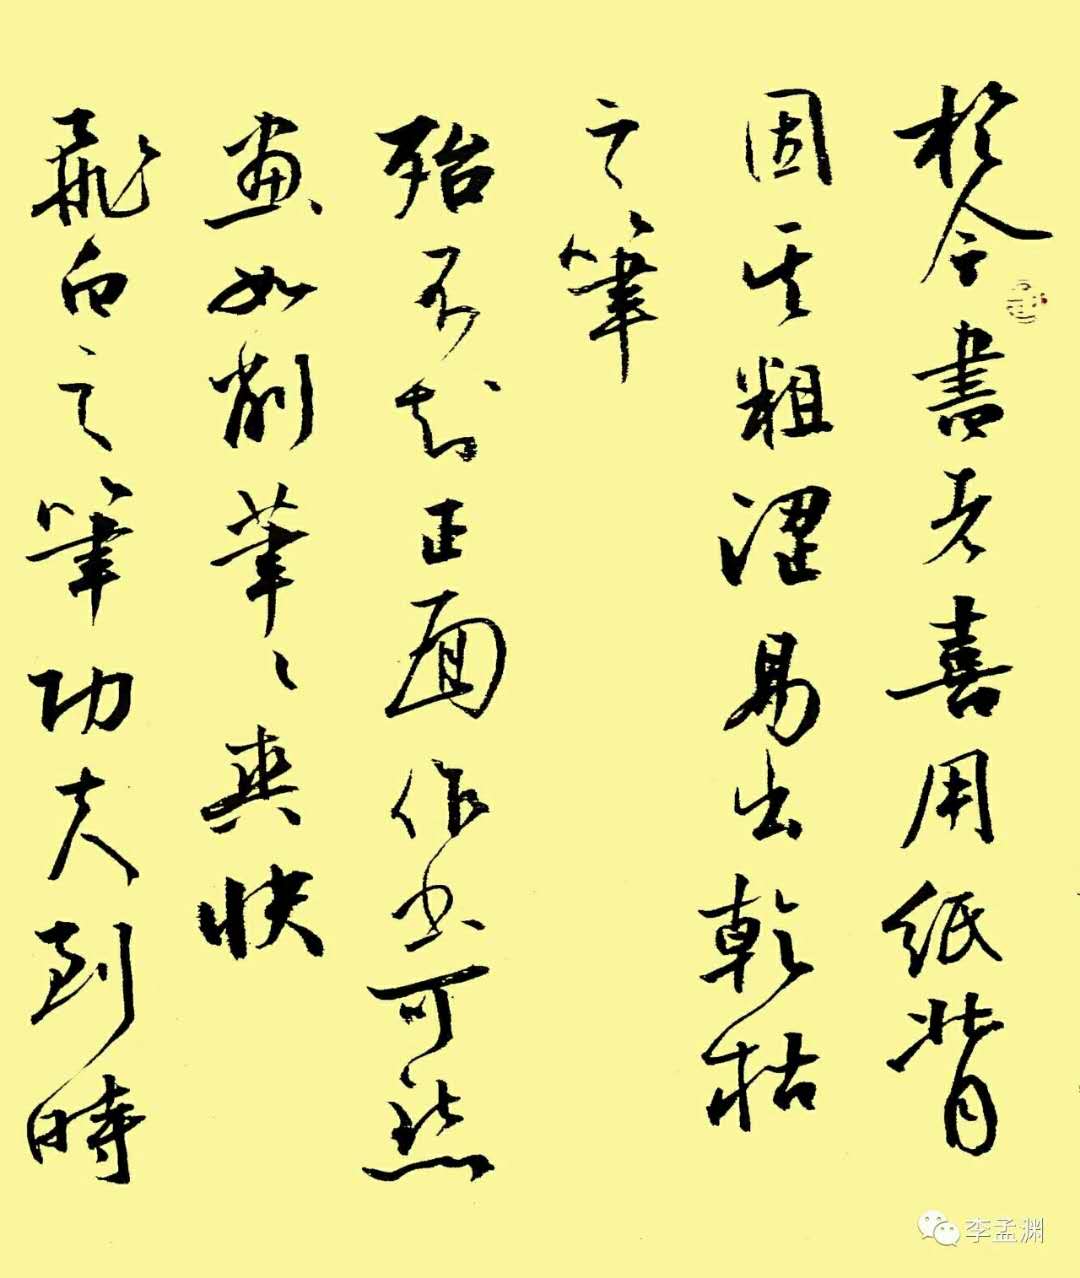 於今書者喜用紙背
固其粗澀易出乾枯
之筆
殆不知正面作书可點
畫如削筆〻爽快
飛白之筆功夫到時
李孟渊